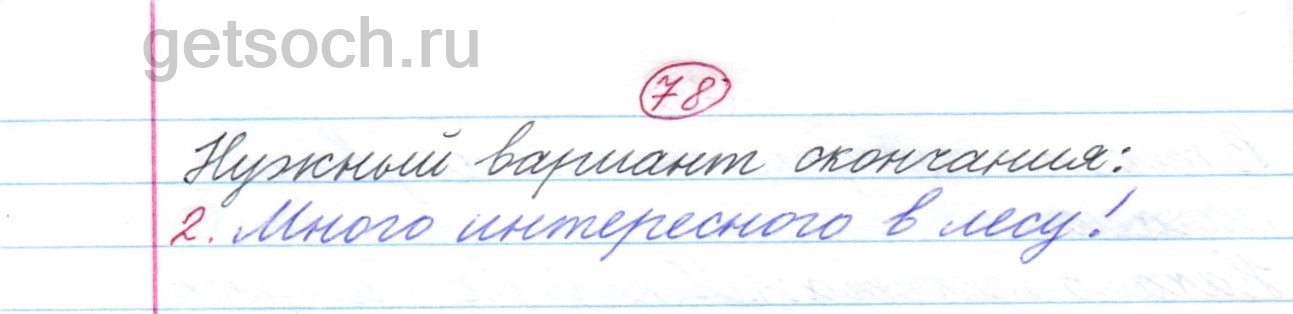 getsoch.ru
78
Нужный вариант окончания:
2. Много интересного в лесу!